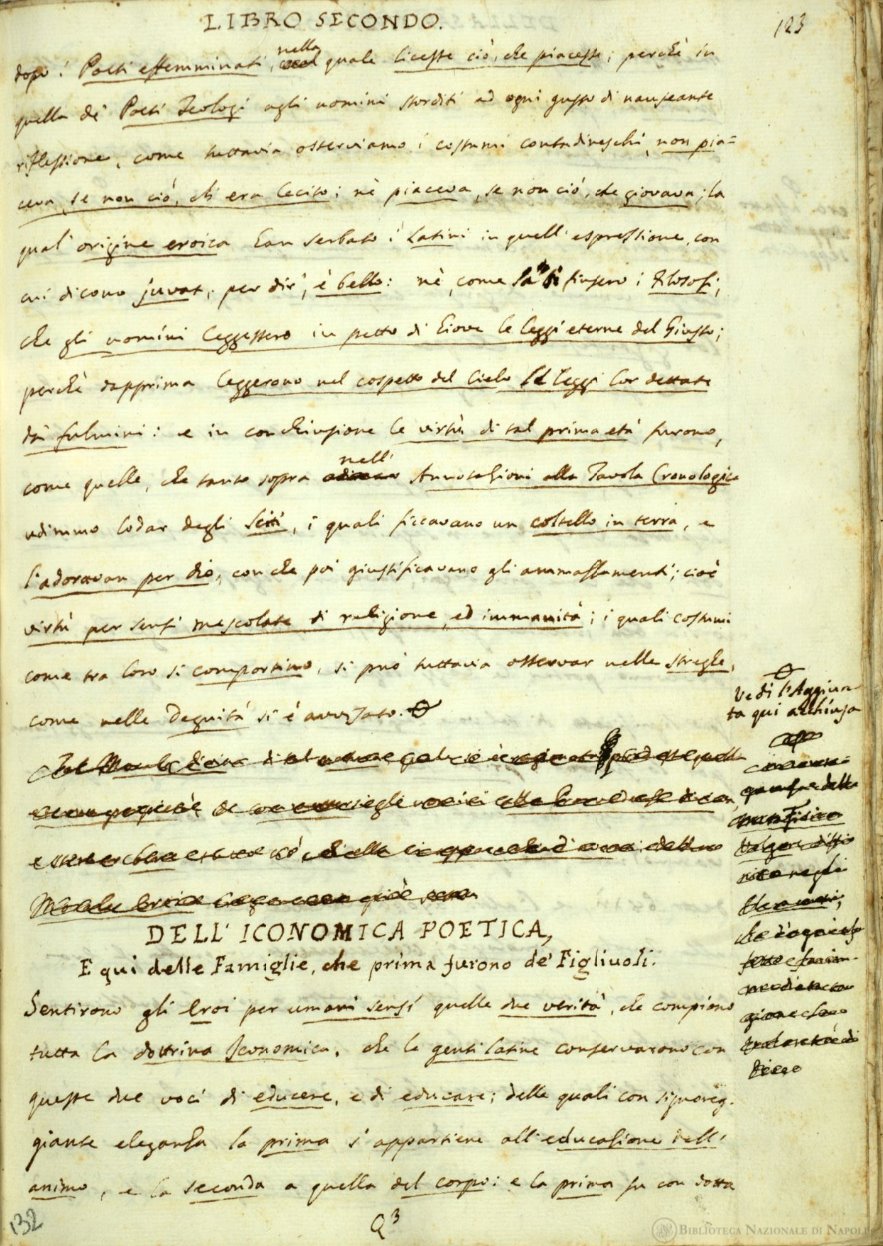 LIBRO SECONDO.
123
dopo i Poeti effemminati, nella quale licesse ciò, che piacesse; perchè in
quella de' Poeti Teologi agli uomini storditi ad ogni gusto di nauseante
riflessione, come tuttavia osserviamo i costumi contadineschi, non pia=
ceva, se non ciò, ch' era lecito; nè piaceva, se non ciò, che giovava; la
qual' origine eroica han serbato i Latini in quell' espressione, con
cui dicono juvat, per dir', è bello: nè, come la si finsero i Filosofi,
che gli uomini leggessero in petto di Giove le leggi eterne del Giusto;
perchè dapprima leggerono nel cospetto del Cielo le leggi lor dettate
da' fulmini: e in conchiusione le virtù di tal prima età furono,
come quelle, che tanto sopra nell' Annotazioni alla Tavola Cronologica
udimmo lodar degli Sciti, i quali ficcavano un coltello in terra, e
l'adoravan per dio, con che poi giustificavano gli ammazzamenti; cioè
virtù per sensi mescolate di religione, ed immanità; i quali costumi
come tra loro si comportino, si può tuttavia osservar nelle streghe,
come nelle Degnità si è avvisato.
Vedi l'Aggiun-
ta qui acchiusa
DELL' ICONOMICA POETICA,
E qui delle Famiglie, che prima furono de' Figliuoli.
Sentirono gli Eroi per umani sensi quelle due verità, che compiono
tutta la dottrina Iconomica, che le genti latine conservarono con
queste due voci di educere, e di educare; delle quali con signoreg-
giante eleganza la prima s' appartiene all' educazione dell'
animo, e la seconda a quella del corpo: e la prima fu con dotta
132
Q3
BIBLIOTECA NAZIONALE DI NAPOLI